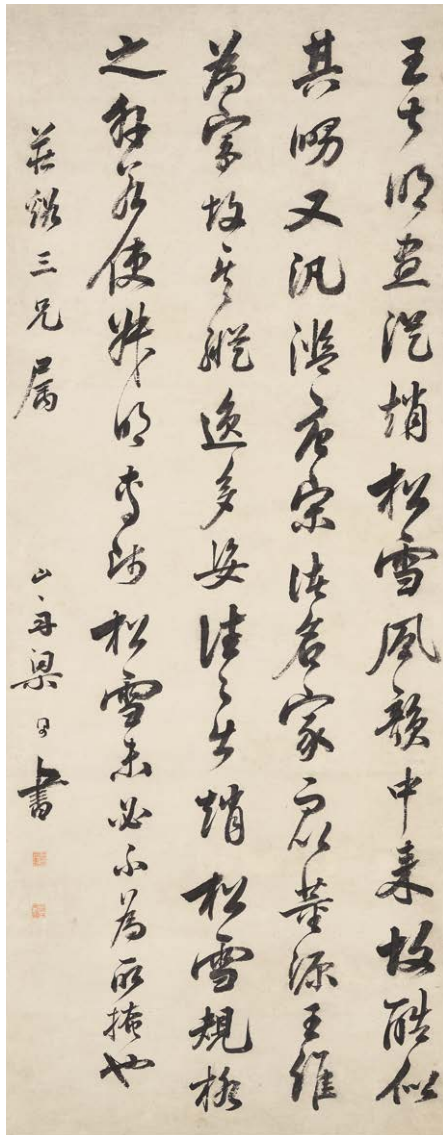 王叔明畫從趙松雪風韻中來故酷似
其舅又汎濫唐宋諸名家而以董源王維
為宗故其縱逸多姿往〻出趙松雪規格
之外若使叔明專師松雪未必不為所掩也
莊谿三兄屬
山舟梁同書